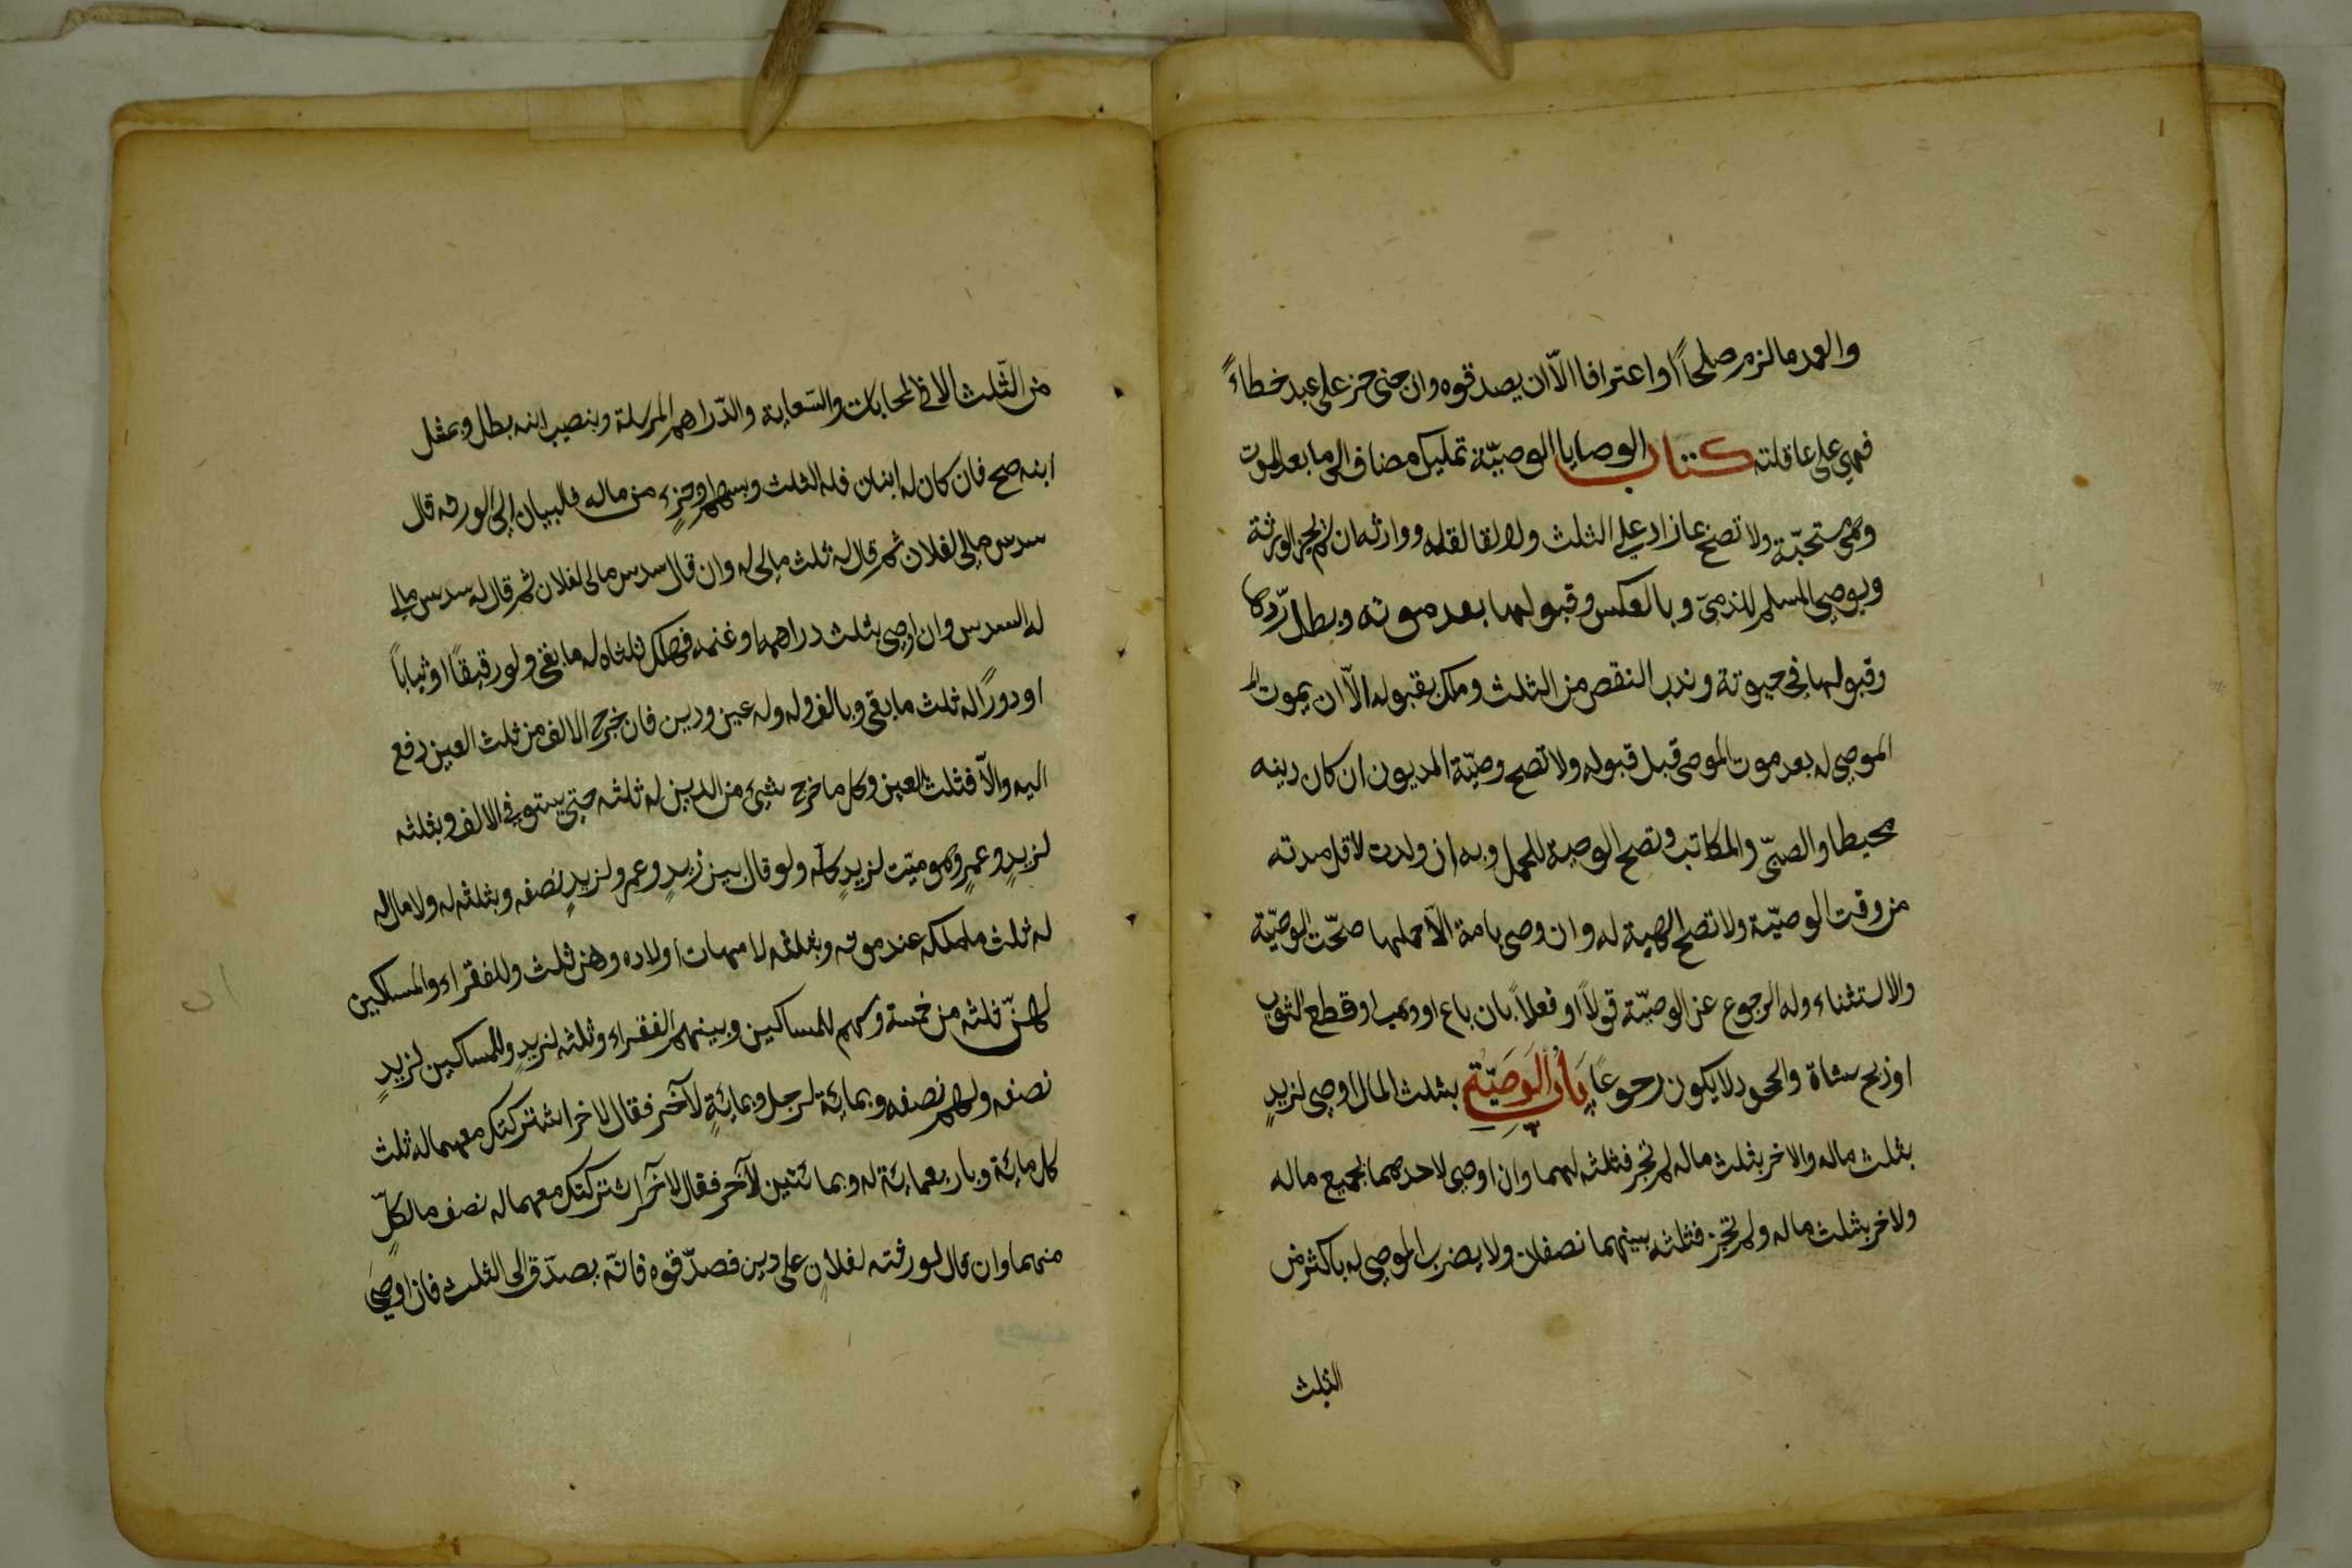 والعمد مالزم صلحاً او اعترافا الّا ان يصدقوه وان جنى حر على عبد خطاءً
فهى على عاقلته كتاب الوصايا الوصيّة تمليك مضاف الى ما بعد الموت
وهى مستحبّة ولا تصح بما زاد على الثلث ولا لقاتله ووارثه ان لم يجز الورثة
ويوصى المسلم للذمىّ وبالعكس وقبولها بعد موته وبطل ردّها
وقبولها فى حيوته وندب النقص من الثلث وملك بقبوله الّا ان يموت
الموصى له بعد موت الموصى قبل قبوله ولا تصح وصيّة المديون ان كان دينه
محيطا والصبىّ والمكاتب وتصح الوصية للحمل وبه ان ولدت لاقل مدته
من وقت الوصيّة ولا تصلح الهبة له وان وصى بامة الّا حملها صحّت الوصيّة
والاستثناء وله الرجوع عن الوصيّة قولاً او فعلاً بان باع او وهب او قطع الثوب
او ذبح شاة والجحود لا يكون رجوعاً بَابُ الوَصيّةِ بثلث المال اوصى لزيدٍ
بثلث ماله والاخر بثلث ماله لم تجز فثلثه لهما وان اوصى لاحدهما بجميع ماله
ولاخر بثلث ماله ولم تجز فثلثه بينهما نصفان ولا يضرب الموصى له باكثر من
الثلث
من الثّلث الا فى المحابات والسّعاية والدّراهم المرسلة وبنصيب ابنه بطل وبمثل
ابنه صح فان كان له ابنان فله الثلث وبسهم او جزءٍ من ماله فالبيان الى الورثه قال
سدس مالى لفلان ثم قال له ثلث مالى له وان قال سدس مالى لفلان ثم قال له سدس مالى
له السدس وان اوصى بثلث دراهمه او غنمه فهلك ثلثاه له ما بقى ولو رقيقاً او ثياباً
او دورًا له ثلث ما بقى وبالف وله عين ودين فان خرج الالف من ثلث العين دفع
اليه والّا فثلث العين وكل ما خرج شىء من الدين له ثلثه حتى يستوفى الالف وبثلثه
لزيدٍ وعمرٍ وهو ميّت لزيدٍ كله ولو قال بين زيدٍ وعمر ولزيدٍ نصفه وبثلثه له ولا مال له
له ثلث ما ملكه عند موته وبثلثه لامهات اولاده وهن ثلث وللفقراء والمساكين
لهنّ ثلثه من خمسة وسهم للمساكين وبينهم الفقراء وثلثه لزيدٍ وللمساكين لزيدٍ
نصفه ولهم نصفه وبمائة لرجل وبمائةٍ لآخر فقال لاخر اشتركتك معهما له ثلث
كل مائة وباربعمائة له وبمائتين لآخر فقال لآخر اشتركتك معهما له نصف ما لكلّ
منهما وان قال لورثته لفلانٍ على دين فصدّقوه فانّه يصدّق الى الثلث فان اوصى